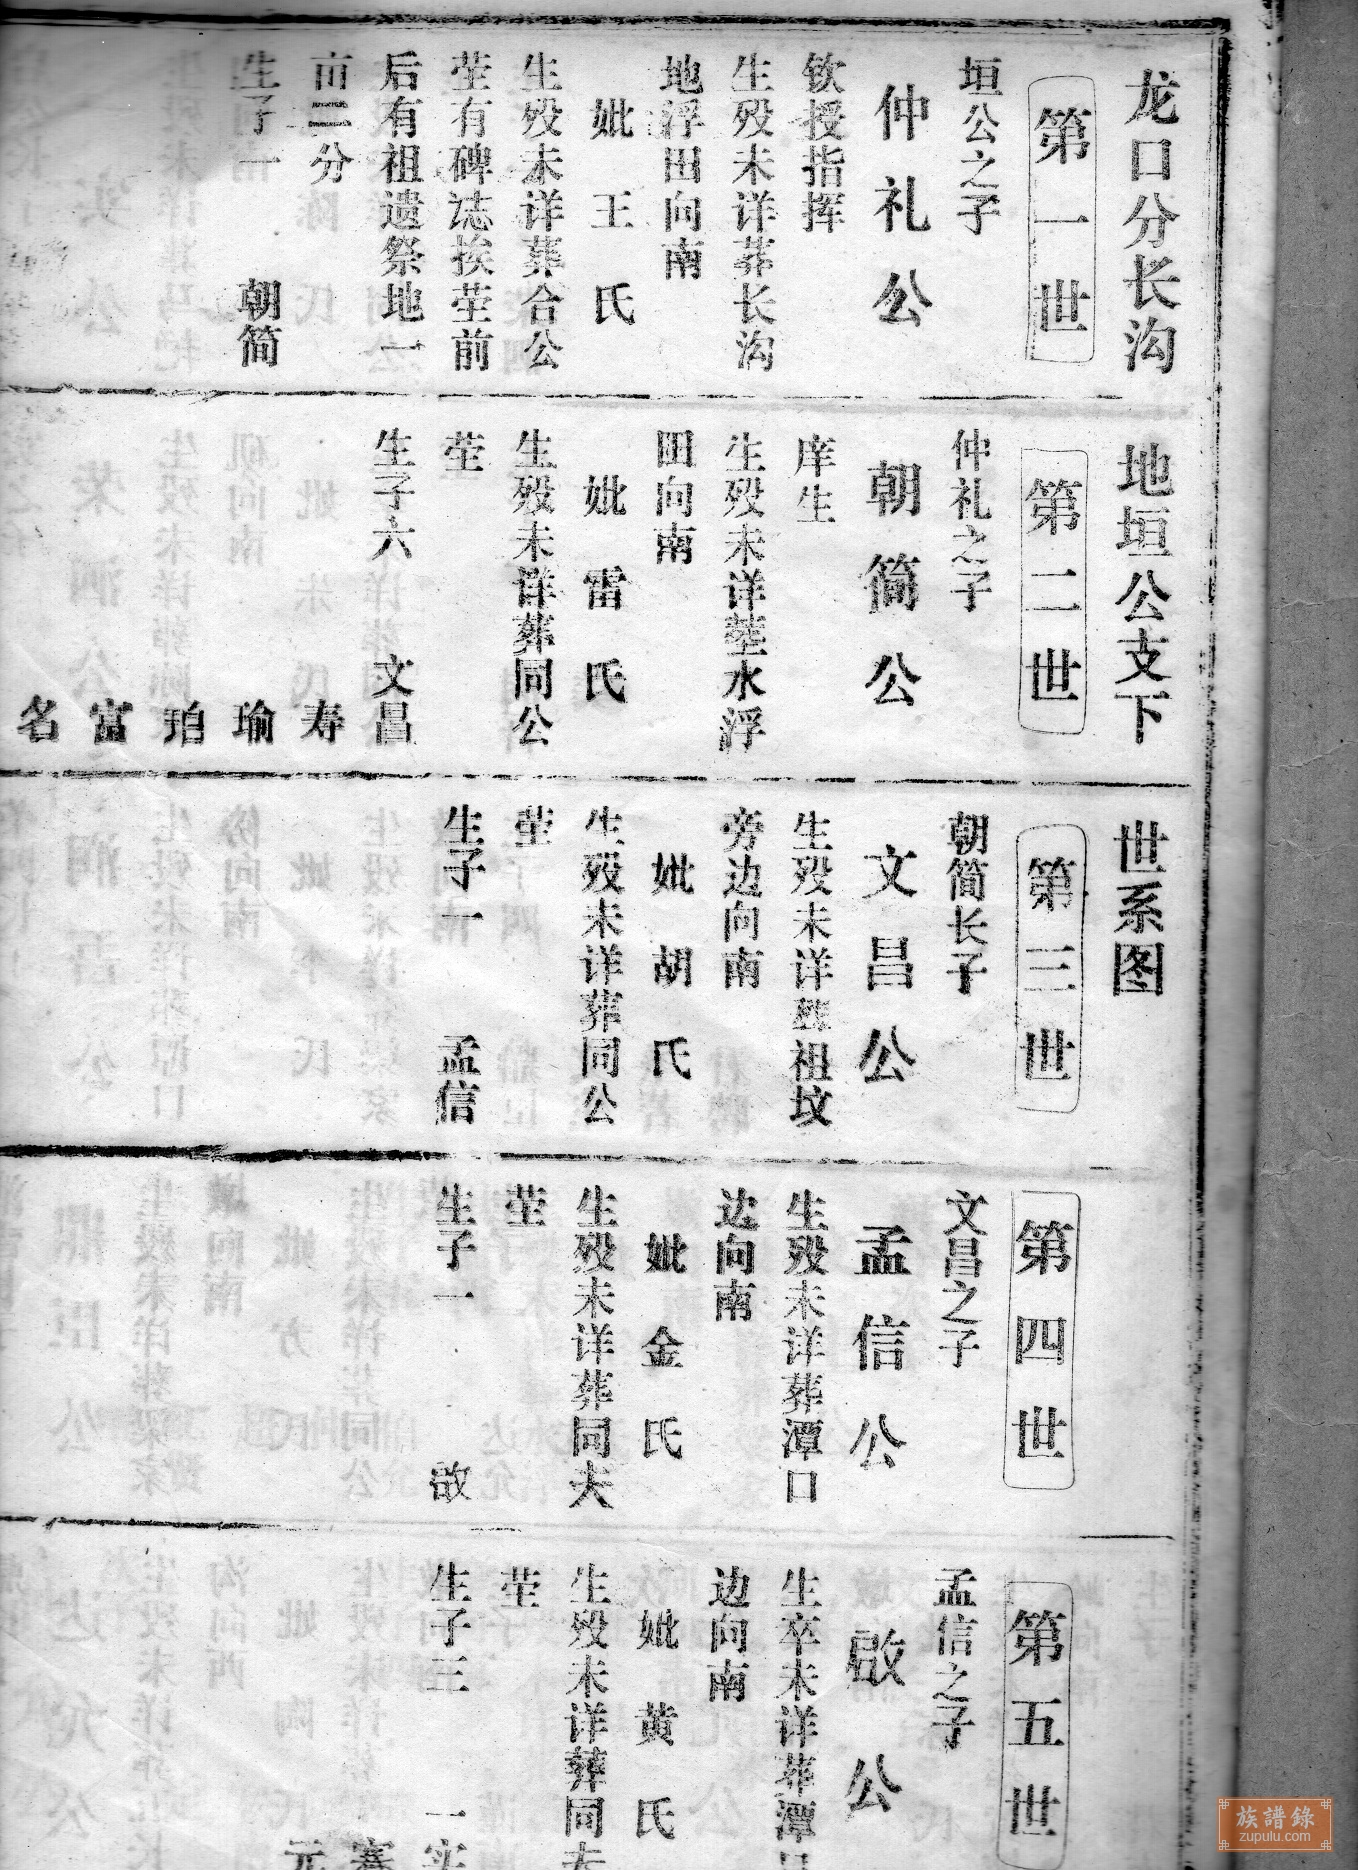 龙口分长沟 地垣公支下 世系图
第一世
垣公之子
仲礼公
钦授指挥
生殁未详葬长沟
地浮田向南
妣王氏
生殁未详葬合公
茔有碑誌挨茔前
后有祖遗祭地一
亩二分
生子一 朝简
第二世
仲礼之子
朝简公
庠生
生殁未详茔水浮
田向南
妣雷氏
生殁未详葬同公
茔
生子六 文昌
寿
瑜
珀
富
名
第三世
朝简长子
文昌公
生殁未详葬祖坟
旁边向南
妣胡氏
生殁未详葬同公
茔
生子一 孟信
第四世
文昌之子
孟信公
生殁未详葬潭口
边向南
妣金氏
生殁未详葬同夫
茔
生子一 啟
第五世
孟信之子
啟公
生卒未详葬潭口
边向南
妣黄氏
生殁未详葬同夫
茔
生子三 一实
元
族譜錄
zupulu.com